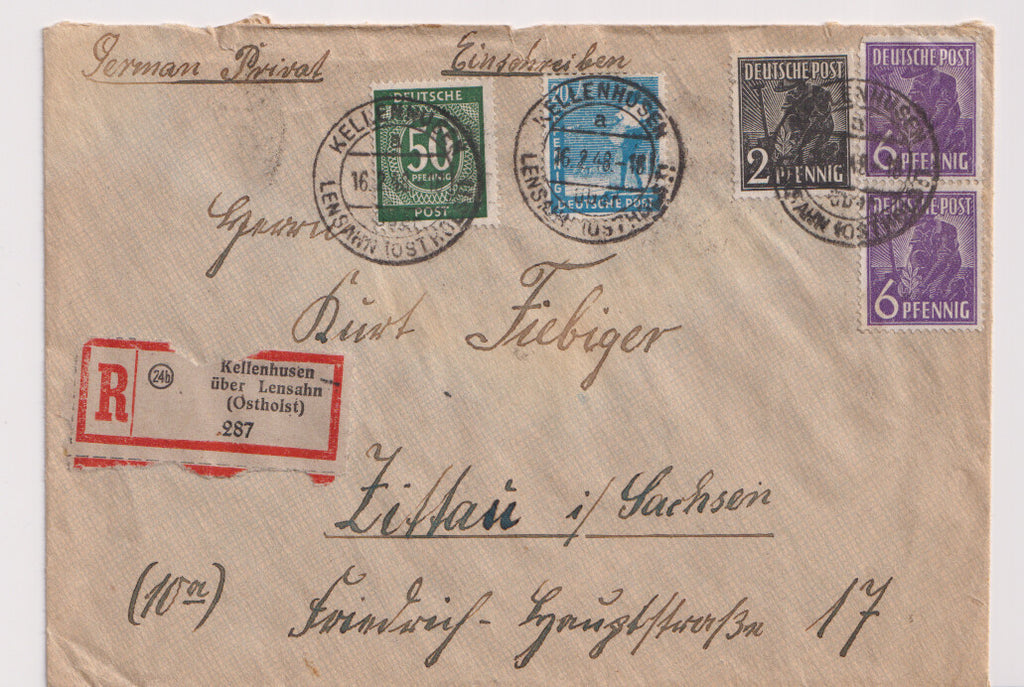 German Privat
Einschreiben
DEUTSCHE
50
PFENNIG
POST
DEUTSCHE POST
DEUTSCHE POST
2 PFENNIG
DEUTSCHE POST
6 PFENNIG
DEUTSCHE POST
6 PFENNIG
KELLENHUSEN
a
16.2.48
LENSAHN (OSTHOLST)
KELLENHUSEN
a
16.2.48.-18
LENSAHN (OSTHOLST)
KELLENHUSEN
LENSAHN (OSTHOLST)
Herrn
Kurt Fiebiger
R
24b
Kellenhusen
über Lensahn
(Ostholst)
287
Zittau i/ Sachsen
(10a)
Friedrich-Hauptstraße 17